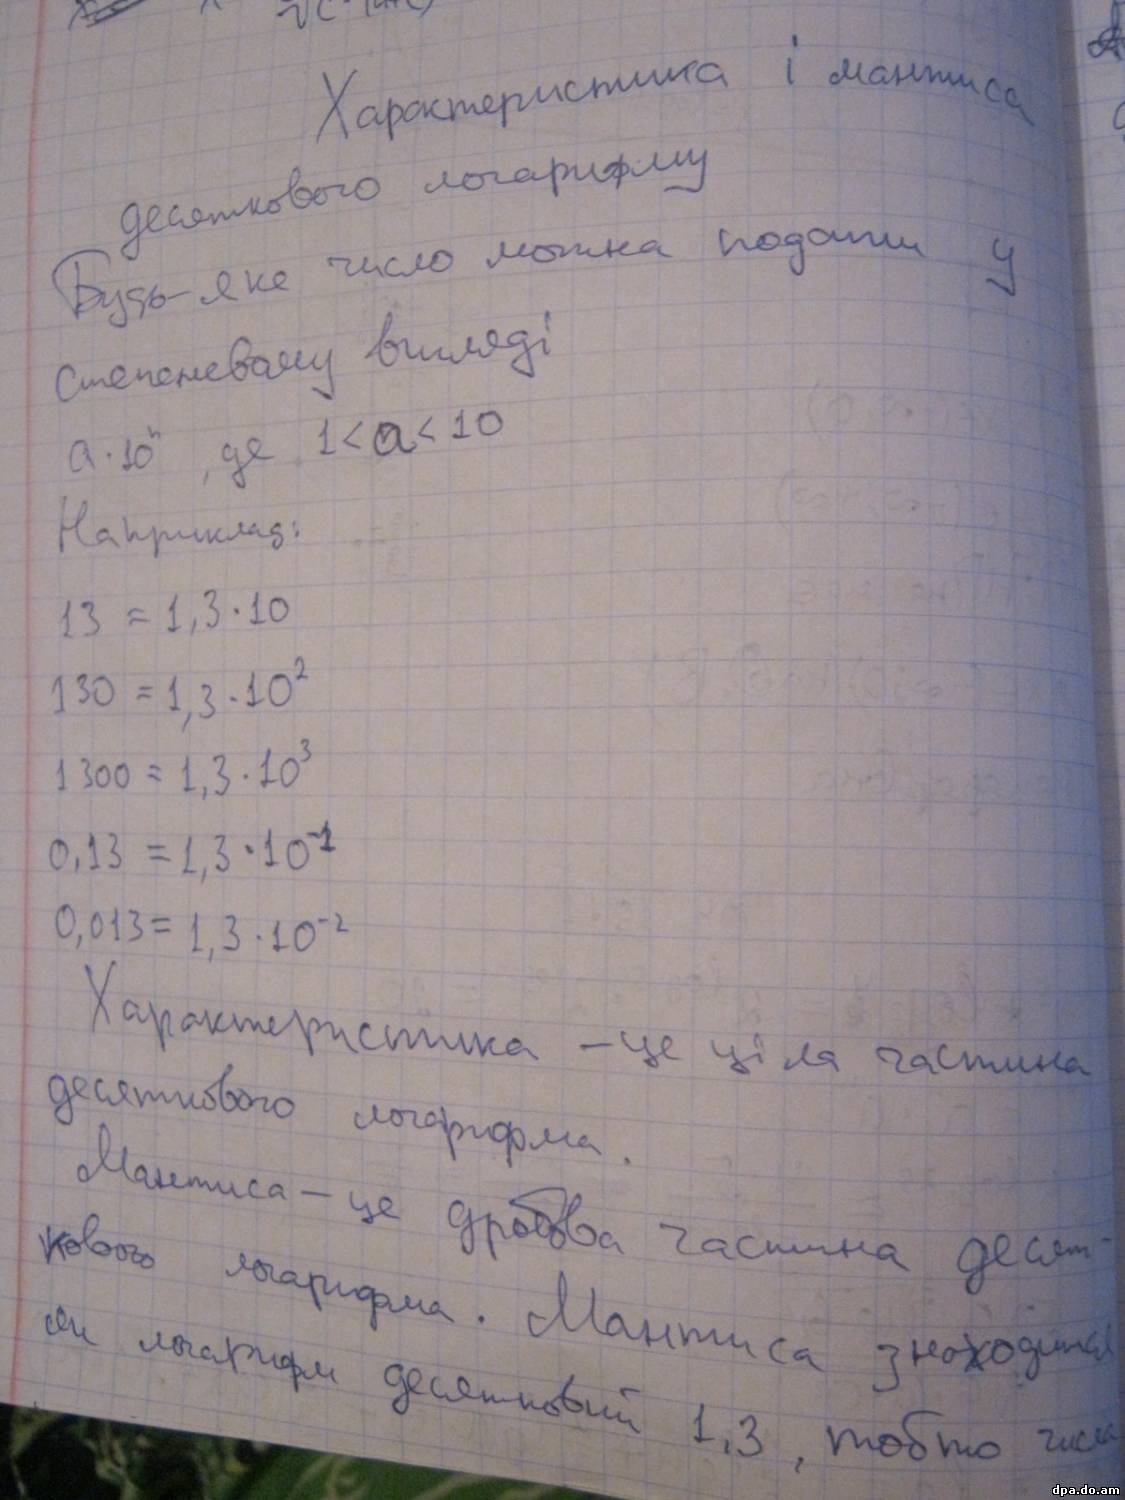 Характеристика і мантиса
десяткового логарифму
Будь-яке число можна подати у
степеневому вигляді
a·10ⁿ, де 1<a<10
Наприклад:
13 = 1,3·10
130 = 1,3·10²
1300 = 1,3·10³
0,13 = 1,3·10⁻¹
0,013 = 1,3·10⁻²
Характеристика – це ціла частина
десяткового логарифма.
Мантиса – це дробова частина десят-
кового логарифма. Мантиса знаходиться
як логарифм десятковий 1,3, тобто числа
dpa.do.am